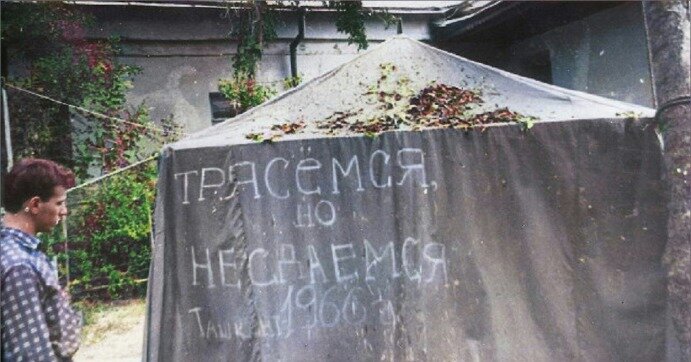 ТРЯСЁМСЯ,
НО
НЕ СДАЕМСЯ
ТАШКЕНТ 1966 г